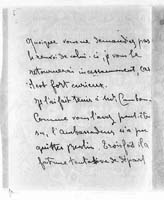 Quoique vous me demandiez pas
le renvoi de celui-ci, je vous le
retournerai incessamment, car
il est fort curieux.
Je l'ai fait tenir à M. Cambon.
Comme vous l'avez peut-être
su, l'Ambassadeur n'a pu
quitter Berlin. Il
fut une tentative de départ